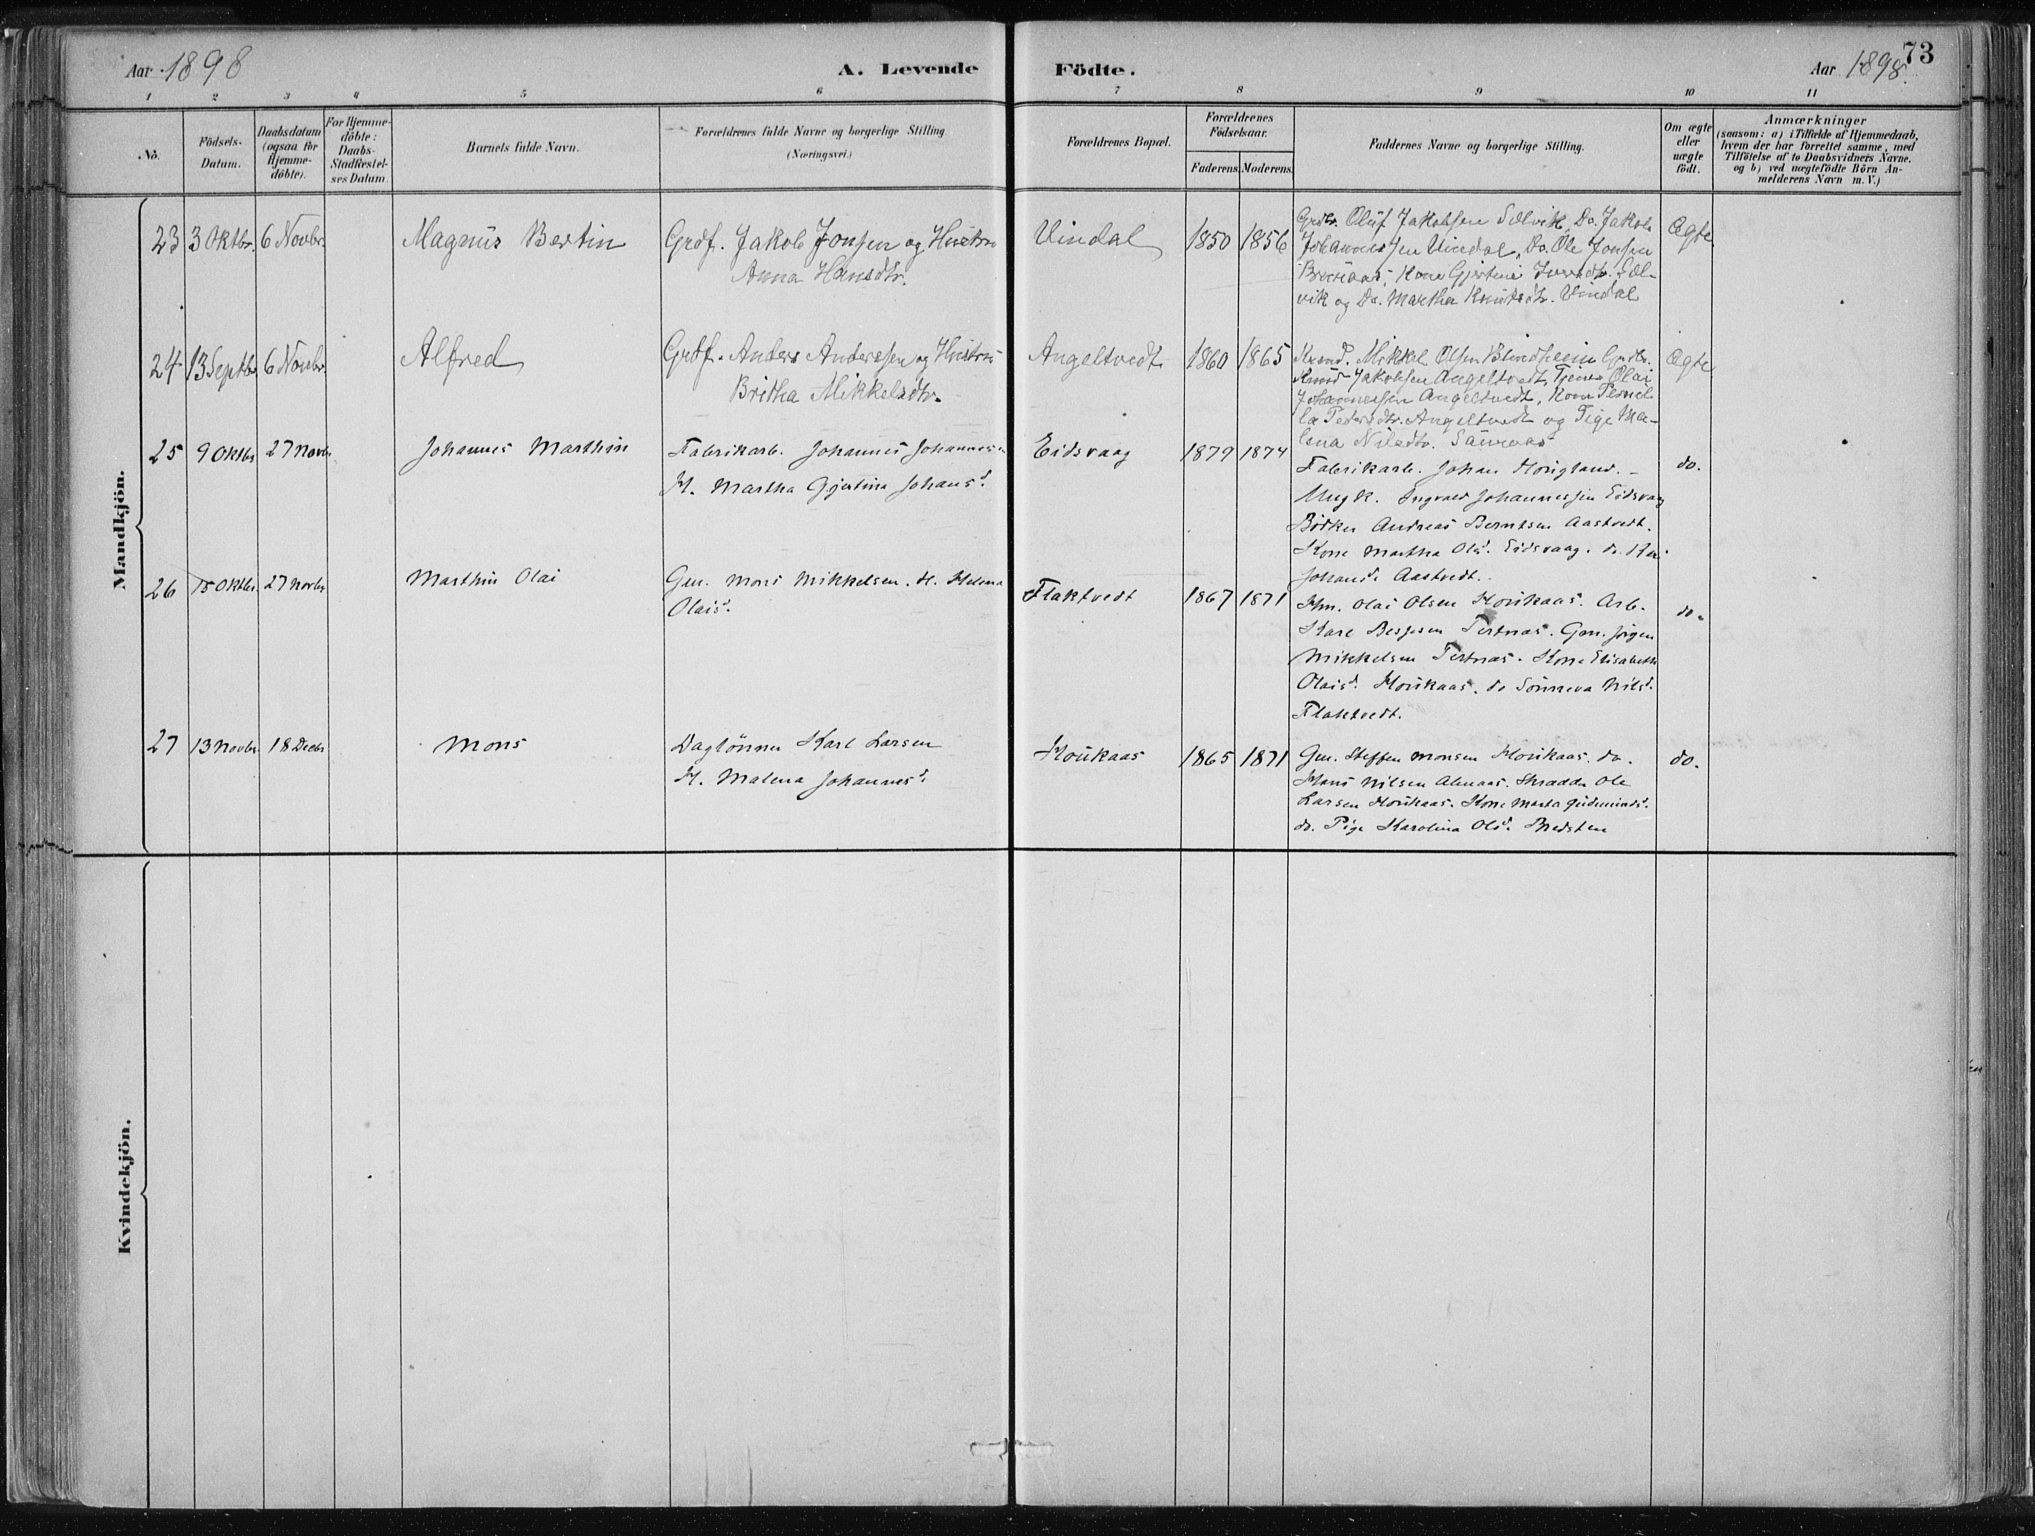 Aar 1898
A. Levende Födte.
Aar 1898.
73
1 2 3 4 5 6 7 8 9 10 11
No.
Födsels-Datum.
Daabsdatum (ogsaa for Hjemme-döbte).
For Hjemme-döbte: Daabs-Stadfæstel-ses Datum.
Barnets fulde Navn.
Forældrenes fulde Navne og borgerlige Stilling.
(Næringsvei.)
Forældrenes Bopæl.
Forældrenes Födselsaar.
Faderens. Moderens.
Faddernes Navne og borgerlige Stilling.
Om ægte eller uægte födt.
Anmærkninger
(saasom: a) i Tilfælde af Hjemmedaab,
hvem der har forrettet samme, med
Tilföielse af to Daabsvidners Navne.
og b) ved uægtefödte Börn An-
melderens Navn m. V.)
Mandkjön.
23 3 Oktbr. 6 Novbr. Magnus Bertin
Grdf. Jakob Jonsen og Hustru
Anna Hansdtr.
Vindal 1850 1856
Grdbr. Oluf Jakobsen Selvik, Do. Jakob
Johannessen Vindal, Do. Ole Jonsen
Kone Gjertine Sæl-
vik og Do. Martha Knutsdtr. Vindal
Ægte
24 13 Septbr 6 Novbr. Alfred
Grdf. Anders Anderssen og Hustru
Britha Mikkelsdtr.
Angeltvedt 1860 1865
Mikkel Olsen Blindheim Grdbr.
Knud Jakobsen Angeltvedt, Tjener Olai
Johannessen Angeltvedt, Kone Pernel-
la Pedersdtr. Angeltvedt og Pige Ma-
lena Nilsdtr. Sauraas
Ægte
25 9 Oktbr 27 Novbr Johannes Marthin
Fabrikarb. Johannes Johannes.n
H. Martha Gjertina Johansd.
Eidsvaag 1879 1874
Fabrikarb. Johan Hougland. -
Ungk. Ingvald Johannessen Eidsvaag
Bödker Andreas Berntsen Aastvedt.
Kone Martha Olsd. Eidsvaag. do Kari
Johansd. Aastvedt.
do.
26 15 Oktbr. 27 Novbr Marthin Olai
Gm. Mons Mikkelsen. H. Helena
Olaisd.
Flaktvedt 1867 1871
Hm. Olai Olsen Houkaas. Arb.
Kare Bessesen Tertnæs. Gm. Jörgen
Mikkelsen Tertnæs. Kone Elisabeth
Olaisd. Houkaas. do Sönneva Nilsd.
Flaktvedt.
do.
27 13 Novbr. 18 Decbr Mons
Daglönner Karl Larsen
H. Malena Johannesd.
Houkaas 1865 1871
Gm. Steffen Monsen Houkaas. do.
Hans Nilsen Almaas. Skrædder Ole
Larsen Houkaas. Kone Marta Gudmundsd.
do. Pige Karolina Olsd. Bredsten
do.
Kvindekjön.